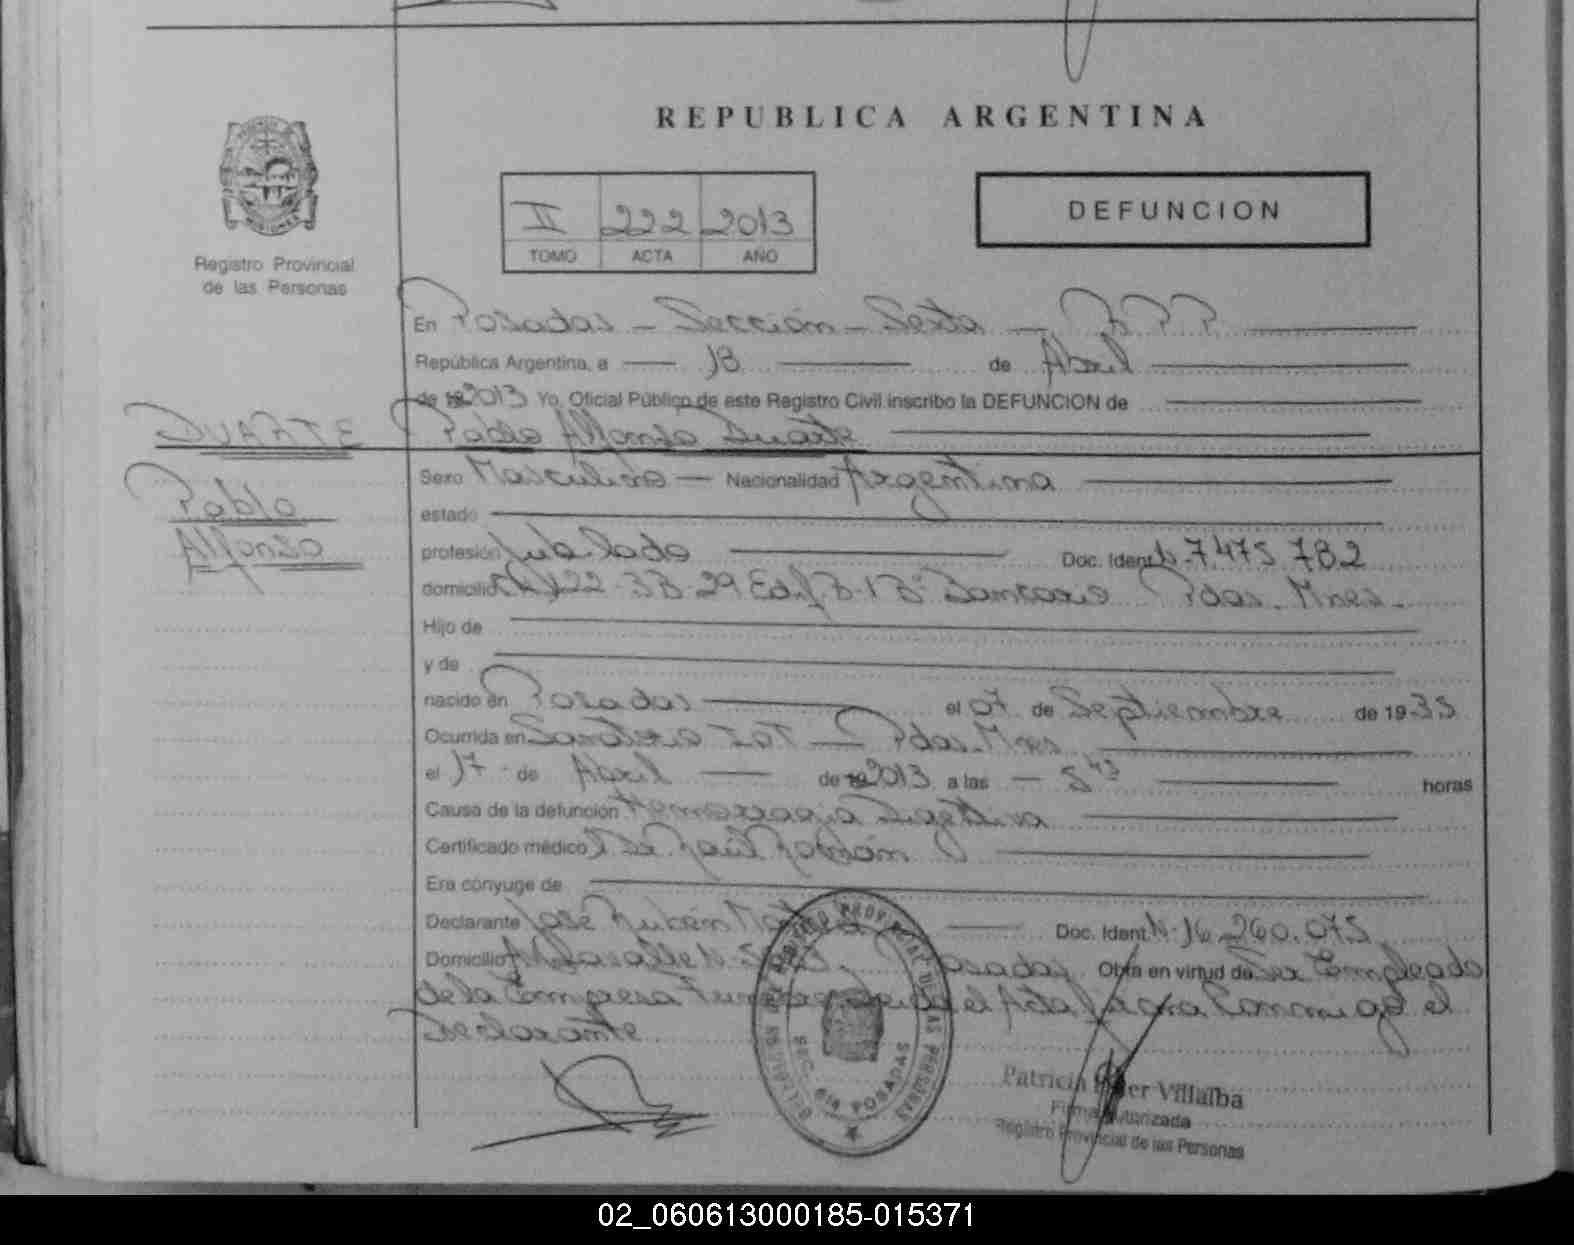 REPUBLICA ARGENTINA
Registro Provincial
de las Personas
II 222 2013
TOMO ACTA AÑO
DEFUNCION
En Posadas - Sección - Sexta - R P P
República Argentina, a 18 de Abril
de 2013 Yo, Oficial Público de este Registro Civil inscribo la DEFUNCION de
DUARTE
Pablo
Alfonso
Pablo Alfonso Duarte
Sexo Masculino Nacionalidad Argentina
estado
profesión Jubilado Doc. Ident. N. 7.475.782
domicilio 122 - 3B - 29 Edif B - 1 B Bancario Pdas. Mnes.
Hijo de
y de
nacido en Posadas el 07 de Septiembre de 1935
Ocurrida en Sanatorio IOT Pdas. Mnes
el 17 de Abril de 2013 a las 5 43 horas
Causa de la defunción Hemorragia Digestiva
Certificado médico Dr Raúl Roldán
Era cónyuge de
Declarante José Rubén Doc. Ident. N. 16.260.075
Domicilio N. Posadas Obra en virtud de Ser Empleado
de la Empresa el Acta firma Conmigo el
Declarante
SEC. 6ta POSADAS
Patricia Villalba
Firma Autorizada
Registro Provincial de las Personas
02_060613000185-015371